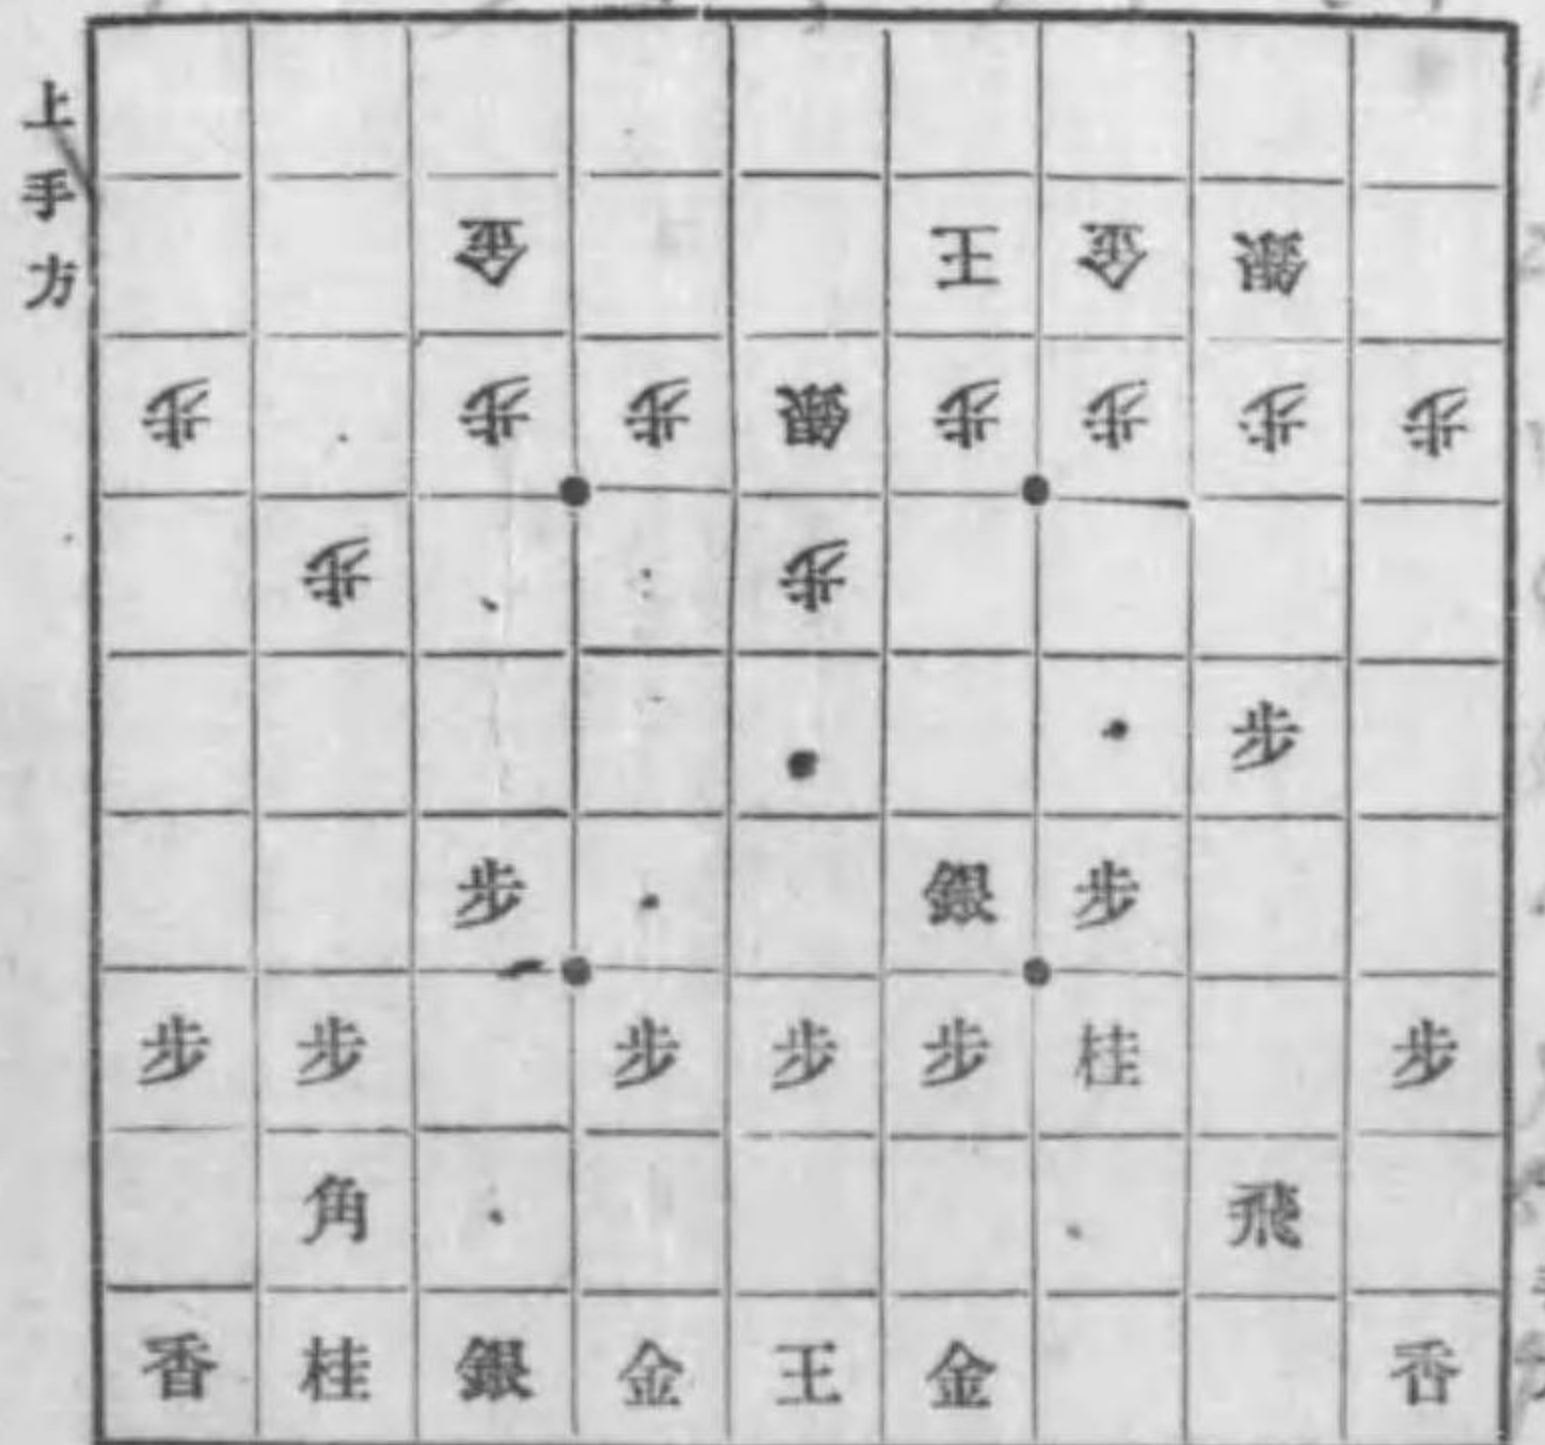 上手方
金 王 金 銀
歩 歩 歩 銀 歩 歩 歩 歩
歩 歩
歩
歩 銀 歩
歩 歩 歩 歩 歩 桂 歩
角 飛
香 桂 銀 金 王 金 香